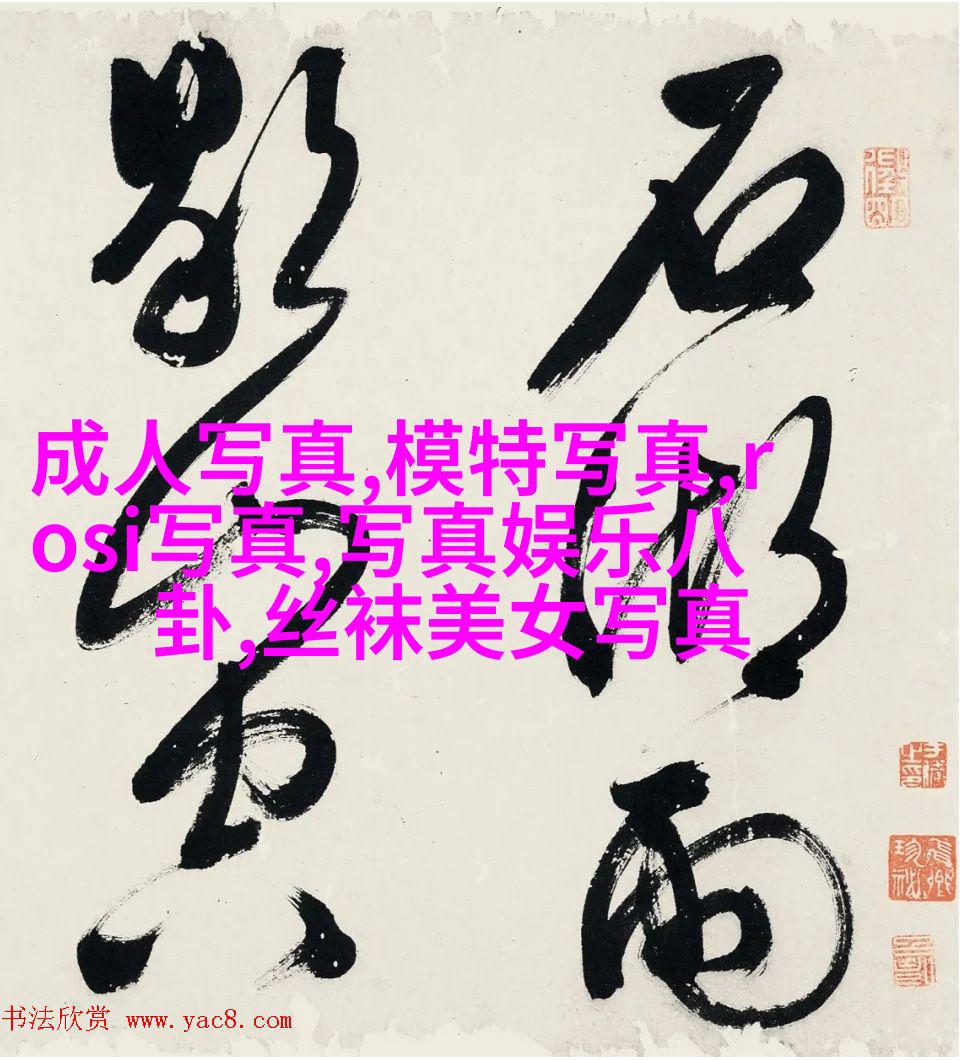 石湖雨
歇山空
成人写真,模特写真,r
osi写真,写真娱乐八
卦,丝袜美女写真
书法欣赏 www.yac8.com